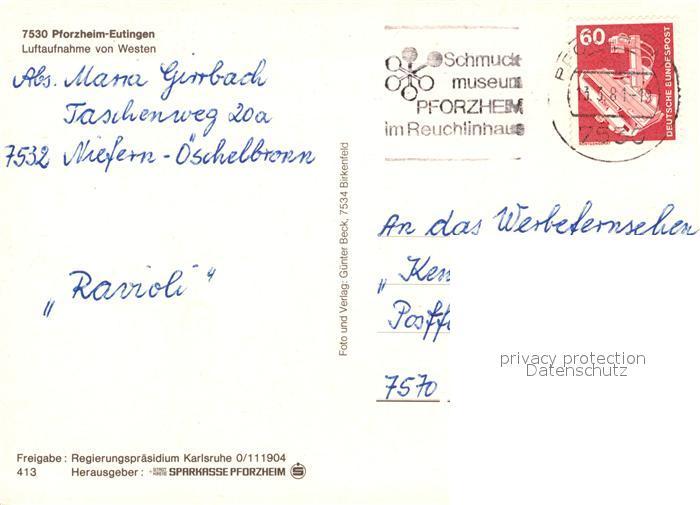 7530 Pforzheim-Eutingen
Luftaufnahme von Westen
Abs. Maria Girrbach
Taschenweg 20a
7532 Niefern-Öschelbronn
„Ravioli“
Freigabe: Regierungspräsidium Karlsruhe 0/111904
413 Herausgeber: SPARKASSE PFORZHEIM
Foto und Verlag: Günter Beck, 7534 Birkenfeld
Schmuck
museum
PFORZHEIM
im Reuchlinhaus
60
DEUTSCHE BUNDESPOST
7530
An das Werbefernsehen
„Ken
Postf
7570
privacy protection
Datenschutz